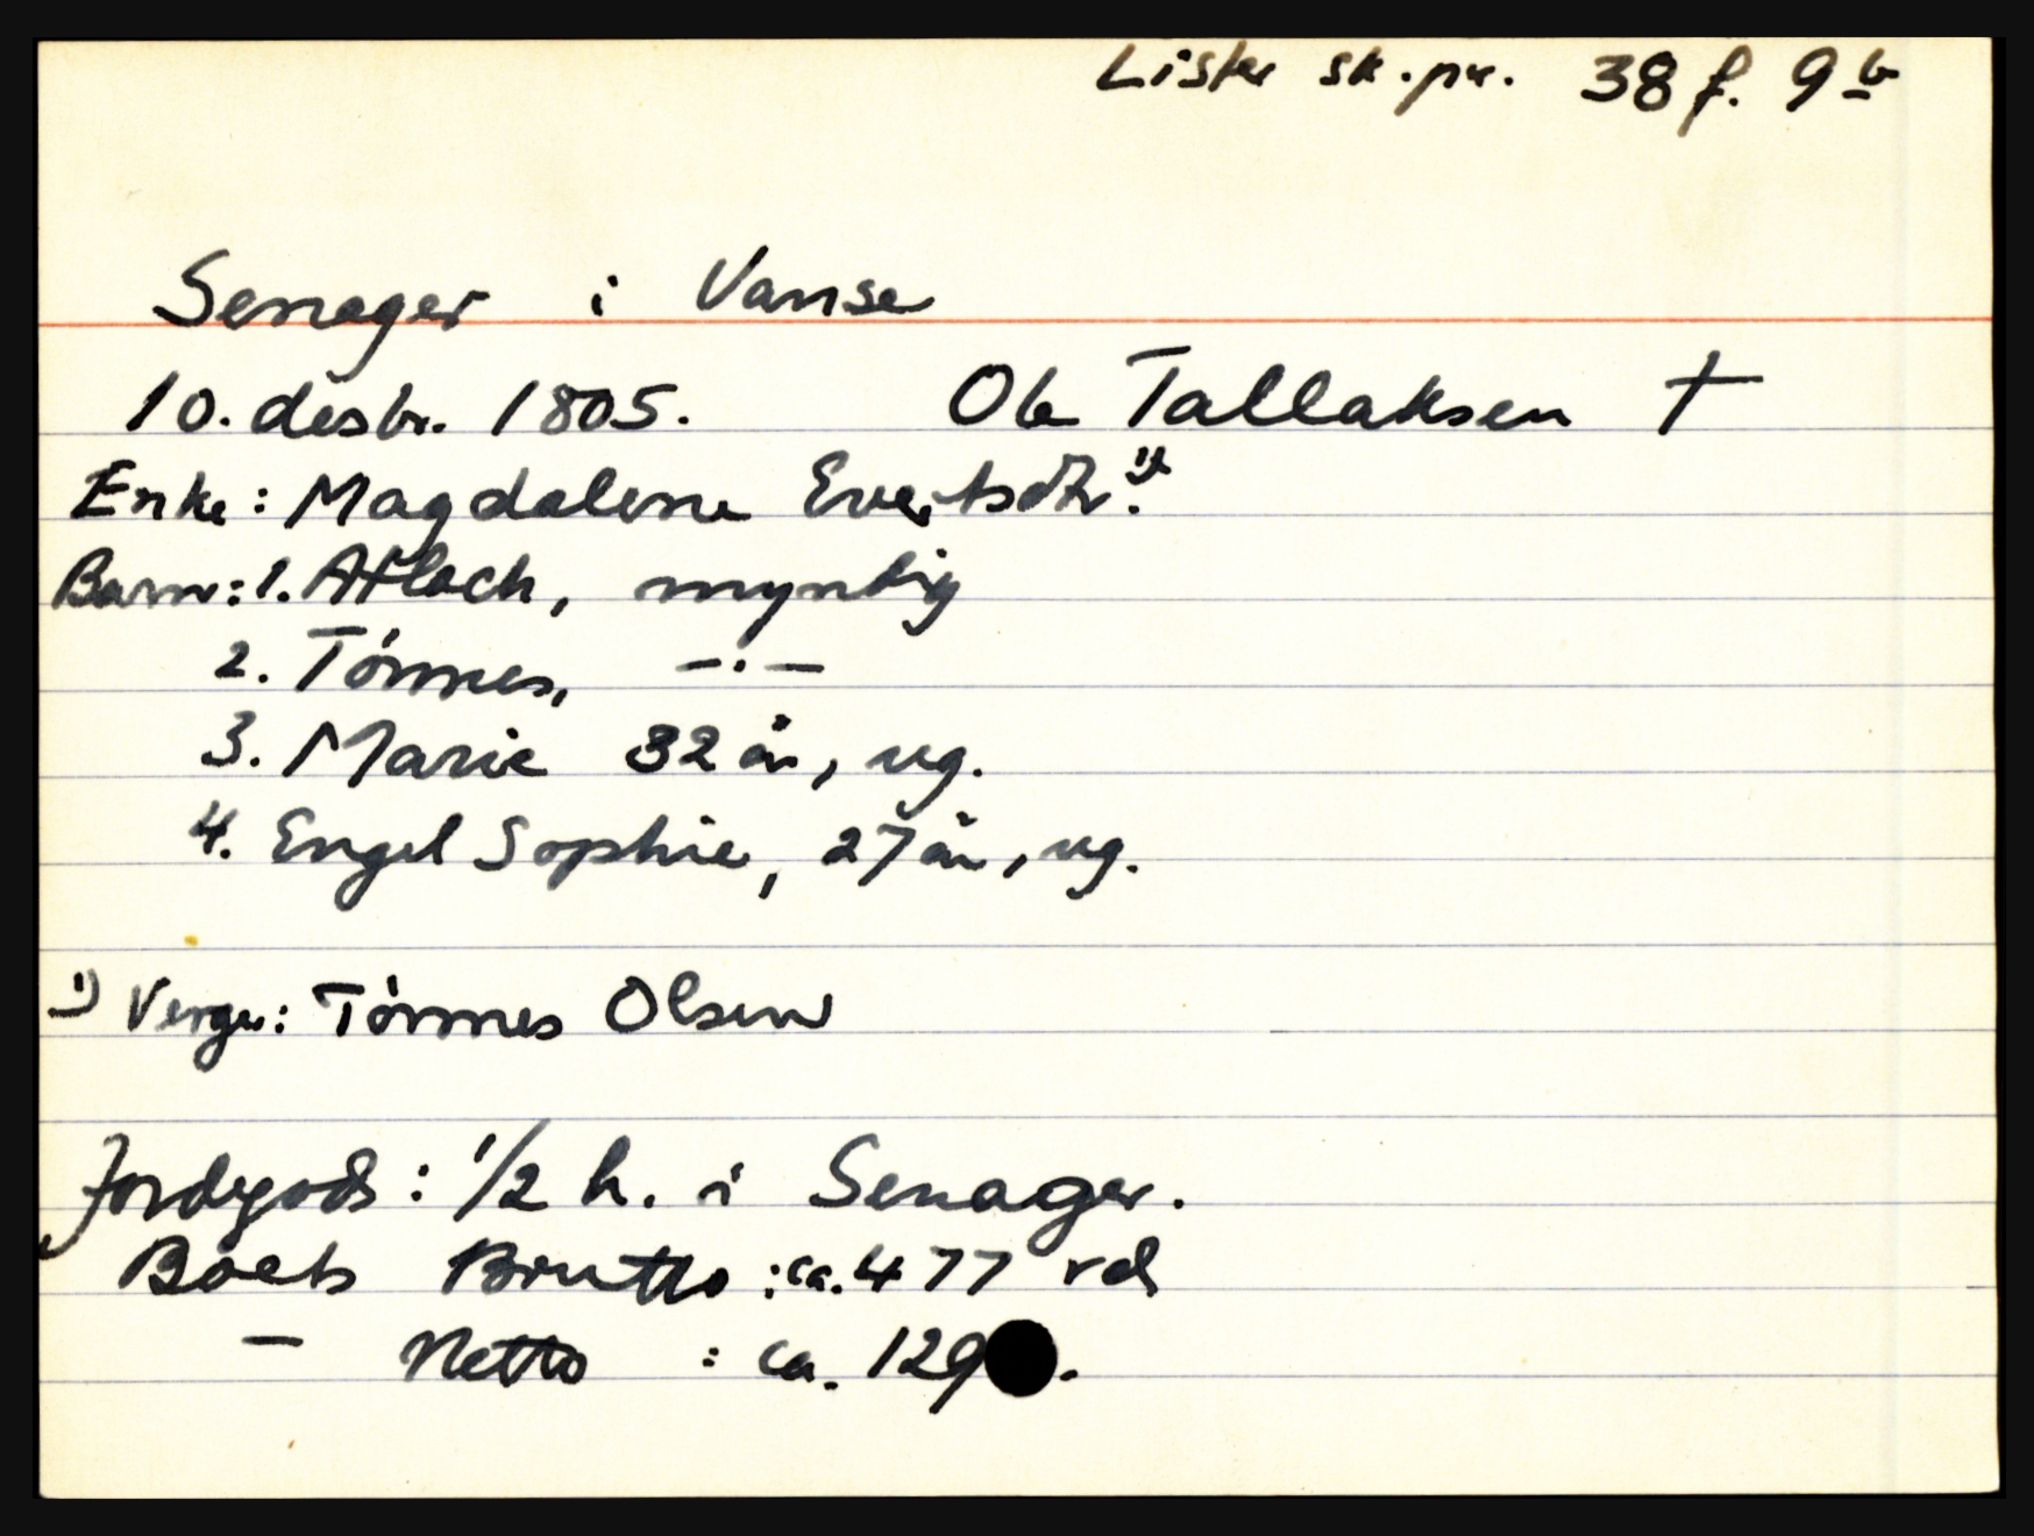 Lister sk.pr. 38 f. 9 b
Senager i Vanse
10. desbr. 1805. Ole Tallaksen †
Enke: Magdalene Evertsdtr. 1)
Barn: 1. Atlach, myntig
2. Tønnes, —·—
3. Marie 32 år, ug.
4. Engel Sophie, 27 år, ug.
1) Verge: Tønnes Olsen
Jordegods: 1/2 h. i Senager.
Boets Brutto: ca. 477 rd
— Netto : ca. 129